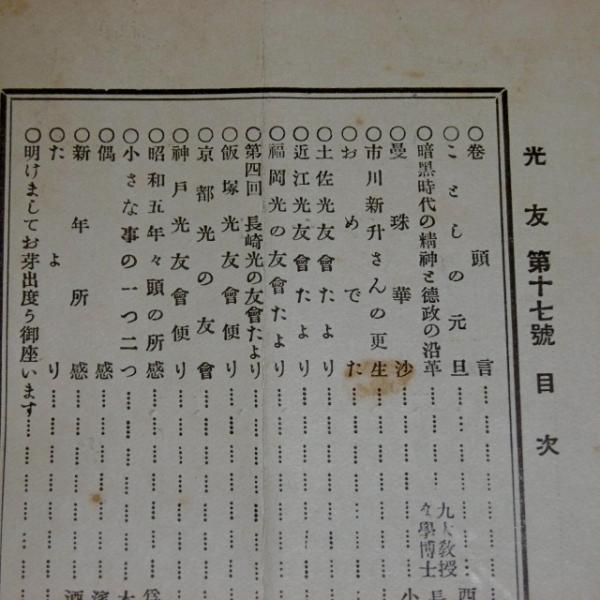 光友第十七號目次
〇卷頭言
〇ことしの元旦
〇暗黑時代の精神と德政の沿革 九大教授 々學博士
〇曼珠華沙
〇市川新升さんの更生
〇おめでた
〇土佐光友會たより
〇近江光友會たより
〇福岡光の友會たより
〇第四回長崎光の友會たより
〇飯塚光友會便り
〇京都光の友會
〇神戸光友會便り
〇昭和五年々頭の所感
〇小さな事の一つ二つ
〇偶感
〇新年所感
〇たより
〇明けましてお芽出度う御座います